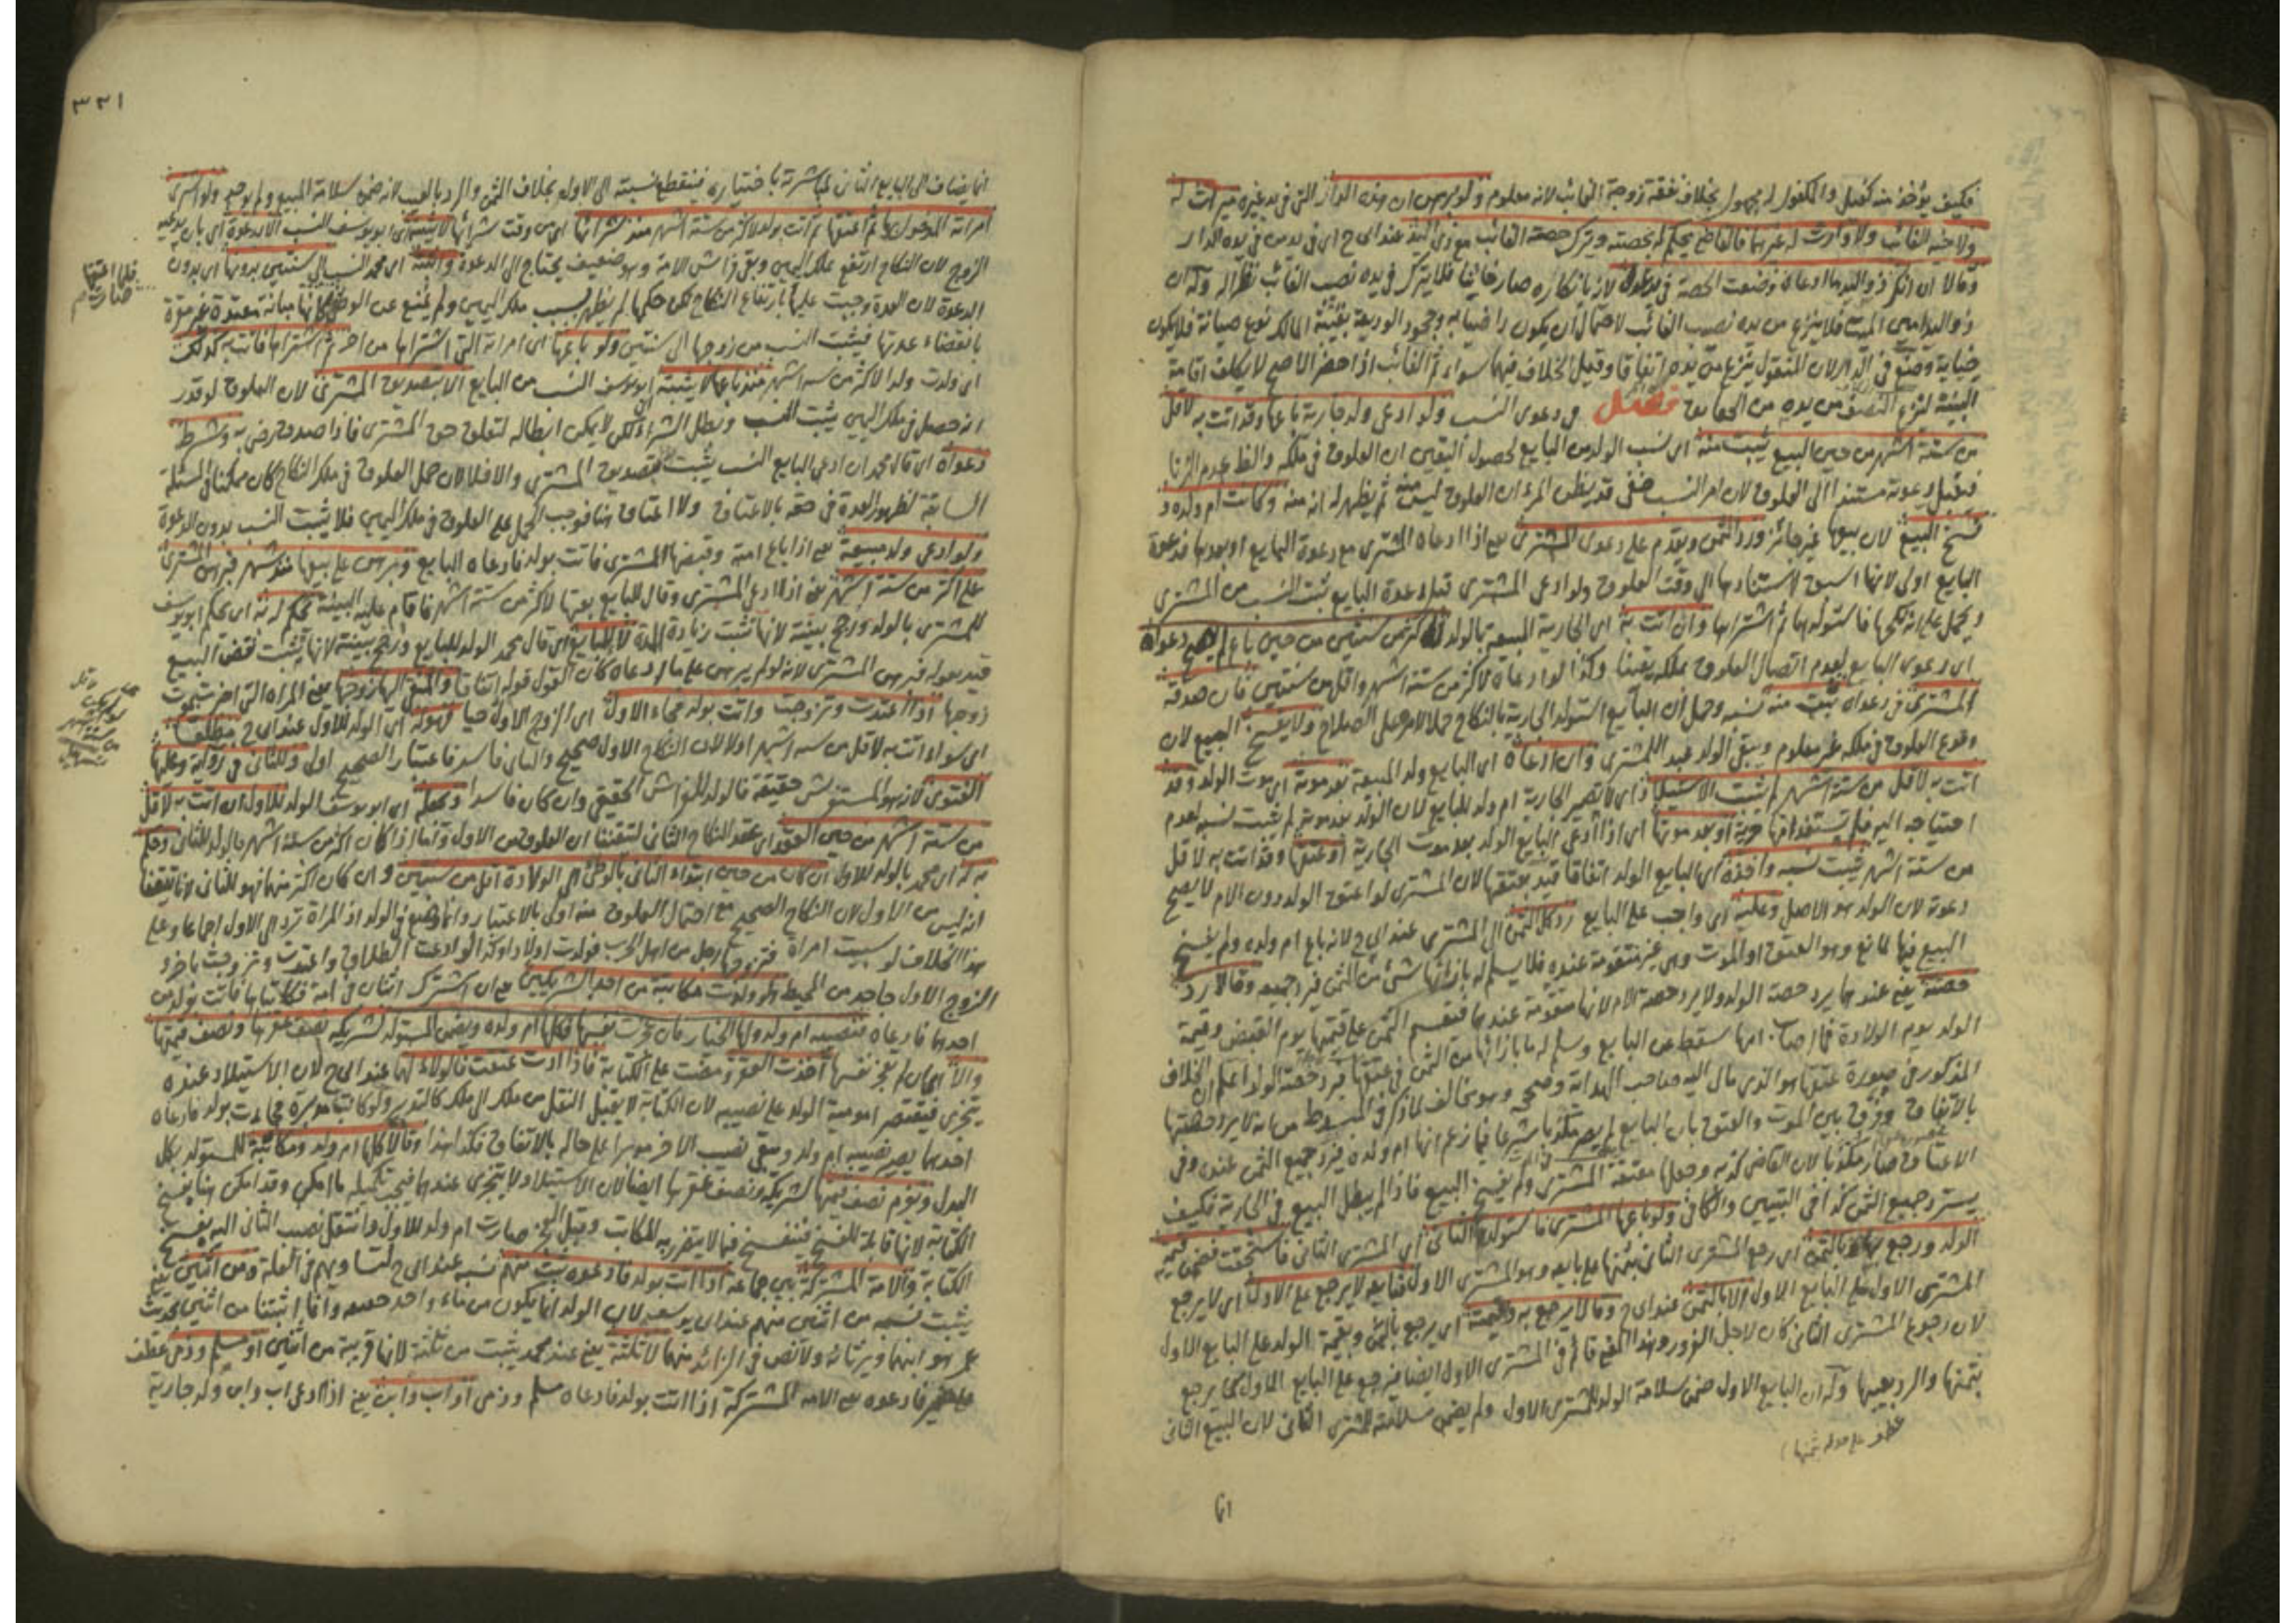 فكيف يؤخذ منه كفيل والمكفول له مجهول بخلاف نفقة زوجة الغائب لانه معلوم ولو برهن ان هذه الدار التى فى يد غيره ميراث له
ولاخيه الغائب ولا وارث له غيرهما فالقاضى يحكم له بحصته ويترك حصة الغائب مع ذى اليد عند ابى ح اى فى يد من فى يده الدار
وقالا ان انكر ذو اليد ما ادعاه وضعت الحصة فى يد عدل لانه بانكاره صار خائنا فلا يترك فى يده نصيب الغائب نظرا له وله ان
ذو اليد امين الميت فلا ينزع من يده نصيب الغائب لاحتمال ان يكون راضيا به وجحود الوديعة بغيبة المالك نوع صيانة فلا يكون
خيانة وضع فى الدار لان المنقول ينزع من يده اتفاقا وقيل الخلاف فيهما سواء ثم الغائب اذا حضر الاصح لا يكلف اقامة
البينة لنزع النصف من يده من الحقايق فصل فى دعوى النسب ولو ادعى ولد جارية باعها وقد اتت به لاقل
من ستة اشهر من حين البيع يثبت منه اى نسب الولد من البايع لحصول اليقين ان العلوق فى ملكه والظاهر عدم الزنا
فتقبل دعوته مستندا الى العلوق لان امر النسب خفى قد يظن المرء ان العلوق ليس منه ثم يظهر له انه منه وكانت ام ولده و
فسخ البيع لان بيعها غير جائز ورد الثمن ويقدم على دعوى المشترى يعنى اذا ادعاه المشترى مع دعوة البايع او بعدها فدعوة
البايع اولى لانها اسبق لاستنادها الى وقت العلوق ولو ادعى المشترى قبل دعوة البايع ثبت النسب من المشترى
ويحمل على انه نكحها فاستولدها ثم اشتراها وان اتت به اى الجارية المبيعة بالولد لاكثر من سنتين من حين باع لم تصح دعواه
اى دعوى البايع لعدم اتصال العلوق بملكه يقينا وكذا لو ادعاه لاكثر من ستة اشهر واقل من سنتين فان صدقه
المشترى فى دعواه يثبت منه نسبه وحمل ان البايع استولد الجارية بالنكاح حملا لامره على الصلاح ولا يفسخ البيع لان
وقوع العلوق فى ملكه غير معلوم ويبقى الولد عبدا للمشترى وان ادعاه اى البايع ولد المبيعة بعد موته اى موت الولد وقد
اتت به لاقل من ستة اشهر لم يثبت الاستيلاد اى لا تصير الجارية ام ولد للبايع لان الولد بعد موته لم يثبت نسبه لعدم
احتياجه اليه فلم تستفد امها حرية او بعد موتها اى اذا ادعى البايع الولد بعد موت الجارية او عتقها وقد اتت به لاقل
من ستة اشهر يثبت نسبه واخذه اى البايع الولد اتفاقا قيد بعتقها لان المشترى لو اعتق الولد دون الام لا يصح
دعوته لان الولد هو الاصل وعليه اى واجب على البايع رد كل الثمن الى المشترى عند ابى ح لانه باع ام ولده ولم يفسخ
البيع فيها لمانع وهو العتق او الموت وهى غير متقومة عنده فلا يسلم له بازائها شئ من الثمن فيرد جميعه وقالا رد
حصته يعنى عندهما يرد حصة الولد ولا يرد حصة الام لانها متقومة عندهما فتقسم الثمن على قيمتها يوم القبض وقيمة
الولد يوم الولادة فما اصاب امها سقط عن البايع وسلم له ما بازائها من الثمن فى عتقها فيرد حصة الولد اعلم ان الخلاف
المذكور فى صورة عتقها هو الذى مال اليه صاحب الهداية وصححه وهو مخالف لما ذكر فى المبسوط من انه لا يرد حصتها
بالاتفاق وفرق بين الموت والعتق بان البايع لم يصر مكذبا شرعا فيما زعم انها ام ولده فيرد جميع الثمن عنده وفى
الاعتاق صار مكذبا لان القاضى كذبه وجعلها معتقة المشترى ولم يفسخ البيع فاذا لم يبطل البيع فى الجارية فكيف
يسترد جميع الثمن كذا فى التبيين والكافى ولو باعها المشترى فاستولدها الثانى اى المشترى الثانى فاستحقت فضمن قيمة
الولد ورجع بها وبالثمن اى رجع المشترى الثانى بثمنها على بايعه وهو المشترى الاول فبايعه لا يرجع على الاول اى لا يرجع
المشترى الاول على البايع الاول الا بالثمن عند ابى ح وقالا يرجع به وبقيمته اى يرجع بالثمن وبقيمة الولد على البايع الاول
لان رجوع المشترى الثانى كان لاجل الغرور وهذا المعنى قائم فى المشترى الاول ايضا فيرجع على البايع الاول كما يرجع
بثمنها والرد بعيبها وله ان البايع الاول ضمن سلامة الولد للمشترى الاول ولم يضمن سلامته للمشترى الثانى لان البيع الثانى
عطف على قوله بثمنها
انما
٣٣١
انما يضاف الى البايع الثانى لمباشرته باختياره فينقطع نسبته الى الاول بخلاف الثمن والرد بالعيب لانه ضمن سلامة المبيع ولم يوجد ولو اشترى
امراته المدخول بها ثم اعتقها ثم اتت بولد لاكثر من ستة اشهر منذ شرائها اى من وقت شرائها لا يثبته اى ابو يوسف النسب الا بدعوة اى بان يدعيه
الزوج لان النكاح ارتفع بملك اليمين وبقى فراش الامة وهو ضعيف يحتاج الى الدعوة واثبته اى محمد النسب الى سنتين بدونها اى بدون
الدعوة لان العدة وجبت عليها بارتفاع النكاح لكن حكمها لم يظهر بسبب ملك اليمين ولم يمنع عن الوطئ كانها مبانة معتدة غير مقرة
فلما اعتقها
صارت
بانقضاء عدتها فيثبت النسب من زوجها الى سنتين ولو باعها اى امراته التى اشتراها من اخر ثم اشتراها فاتت به كذلك
اى ولدت ولدا لاكثر من سه اشهر منذ باعها لا يثبته ابو يوسف النسب من البايع الا بتصديق المشترى لان العلوق لو قدر
انه حصل فى ملك اليمين يثبت النسب وبطل الشراء لكن لا يمكن ابطاله لتعلق حق المشترى فاذا صدق رضى به وشرط
دعواه اى قال محمد ان ادعى البايع النسب يثبت بتصديق المشترى والا فلا لان حمل العلوق فى ملك النكاح كان ممكنا فى المسئلة
السابقة لظهور العدة فى حقه بالاعتاق ولا اعتاق هنا فوجب الحمل على العلوق فى ملك اليمين فلا يثبت النسب بدون الدعوة
ولو ادعى ولد مبيعة يعنى اذا باع امة وقبضها المشترى فاتت بولد فادعاه البايع وبرهن على بيعها منذ شهر فبرهن المشترى
على اكثر من ستة اشهر يعنى اذا ادعى المشترى وقال للبايع بعتها لاكثر من ستة اشهر فاقام عليه البينة يحكم له به اى يحكم ابو يوسف
للمشترى بالولد ورجح بينته لانها تثبت زيادة المدة لا للبايع اى قال محمد الولد للبايع ورجح بينته لانها تثبت نقض البيع
قيد بقوله فبرهن المشترى لانه لو لم يبرهن على ما ادعاه كان القول قوله اتفاقا والمنعى اليها زوجها يعنى المراة التى اخبرت بموت
زوجها اذا اعتدت وتزوجت واتت بولد فجاء الاول اى الزوج الاول حيا فهو له اى الولد للاول عند ابى ح مطلقا
اى سواء اتت به لاقل من سه اشهر او لا لان النكاح الاول صحيح والثانى فاسد فاعتبار الصحيح اولى وللثانى فى رواية وعليها
الفتوى لانه هو المستفرش حقيقة فالولد للفراش الحقيقى وان كان فاسدا ويجعله اى ابو يوسف الولد للاول ان اتت به لاقل
من ستة اشهر من حين العقد اى عقد النكاح الثانى لتيقننا ان العلوق من الاول واما اذا كان اكثر من ستة اشهر فالولد للثانى وحكم
به له اى محمد بالولد للاول ان كان من حين ابتداء الثانى بالوطئ الى الولادة اقل من سنتين وان كان اكثر منهما فهو للثانى لانا تيقننا
انه ليس من الاول لان النكاح الصحيح مع احتمال العلوق منه اولى بالاعتبار وانما وضع فى الولد اذ المراة ترد الى الاول اجماعا وعلى
هذا الخلاف لو سبيت امراة فتزوجها رجل من اهل الحرب فولدت اولادا وكذا لو ادعت الطلاق واعتدت وتزوجت باخر و
الزوج الاول جاحد من المحيط ولو ولدت مكاتبة من احد الشريكين يعنى ان اشترك اثنان فى امة فكاتباها فاتت بولد من
احدهما فادعاه فنصيبه ام ولد ولها الخيار فان عجزت نفسها فكلها ام ولده ويضمن المستولد لشريكه نصف عقرها ونصف قيمتها
والا اى ان لم تعجز نفسها اخذت العقر ومضت على الكتابة فاذا ادت عتقت فالولاء لهما عند ابى ح لان الاستيلاد عنده
يتجزى فيقتصر امومية الولد على نصيبه لان الكتابة لا يقبل النقل من ملك الى ملك كالتدبير ولو كانت مدبرة فجاءت بولد فادعاه
احدهما يصير نصيبه ام ولد ويبقى نصيب الاخر مدبرا على حاله بالاتفاق فكذا هذا وقالا كلها ام ولد ومكاتبة للمستولد بكل
البدل ويقوم نصف قيمتها لشريكه ونصف عقرها ايضا لان الاستيلاد لا يتجزى عندهما فيجب تكميله ما امكن وقد امكن هنا بفسخ
الكتابة لانها قابلة للفسخ فتنفسخ فيما لا يتضرر به المكاتب وقبل العجز صارت ام ولد للاول وانتقل نصيب الثانى اليه بفسخ
الكتابة والامة المشتركة بين جماعة اذا اتت بولد فادعوه يثبت منهم نسبه عند ابى ح لتساويهم فى العلة ومن اثنين يعنى
يثبت نسبه من اثنين منهم عند ابى يوسف لان الولد انما يكون من ماء واحد حقيقة وانما اثبتنا من اثنين لحديث
عمر هو ابنهما ويرثانه ولا نص فى الزائد منهما لا ثلثة يعنى عند محمد يثبت من ثلثة لانها قريبة من اثنين او مسلم وذمى عطف
على ضمير فادعوه يعنى الامة المشتركة اذا اتت بولد فادعاه مسلم وذمى او اب وابن يعنى اذا ادعى اب وابن ولد جارية